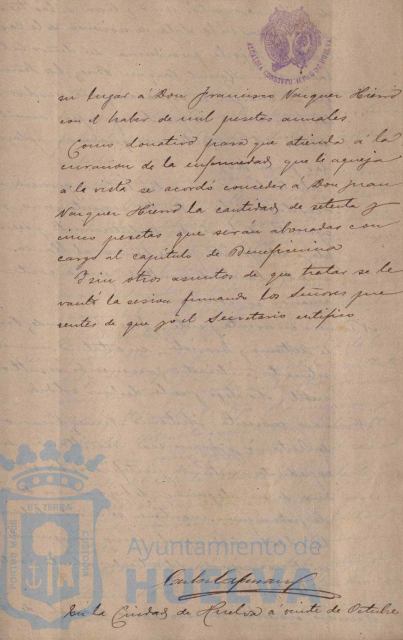 ALCALDIA CONSTITUCIONAL DE HUELVA
su lugar á Don Francisco Vazquez Hierro
con el haber de mil pesetas anuales
Como donativo para que atienda á la
curacion de la enfermedad que le aqueja
á la vista se acordó conceder á Don Juan
Vazquez Hierro la cantidad de setenta y
cinco pesetas que seran abonadas con
cargo al capitulo de Beneficencia
Y sin otros asuntos de que tratar se le
vantó la sesion firmando los Señores pre
sentes de que yo el Secretario certifico
PORTUS MARIS
ET TERRÆ
CUSTODIA
Ayuntamiento de
HUELVA
En la Ciudad de Huelva á veinte de Octubre